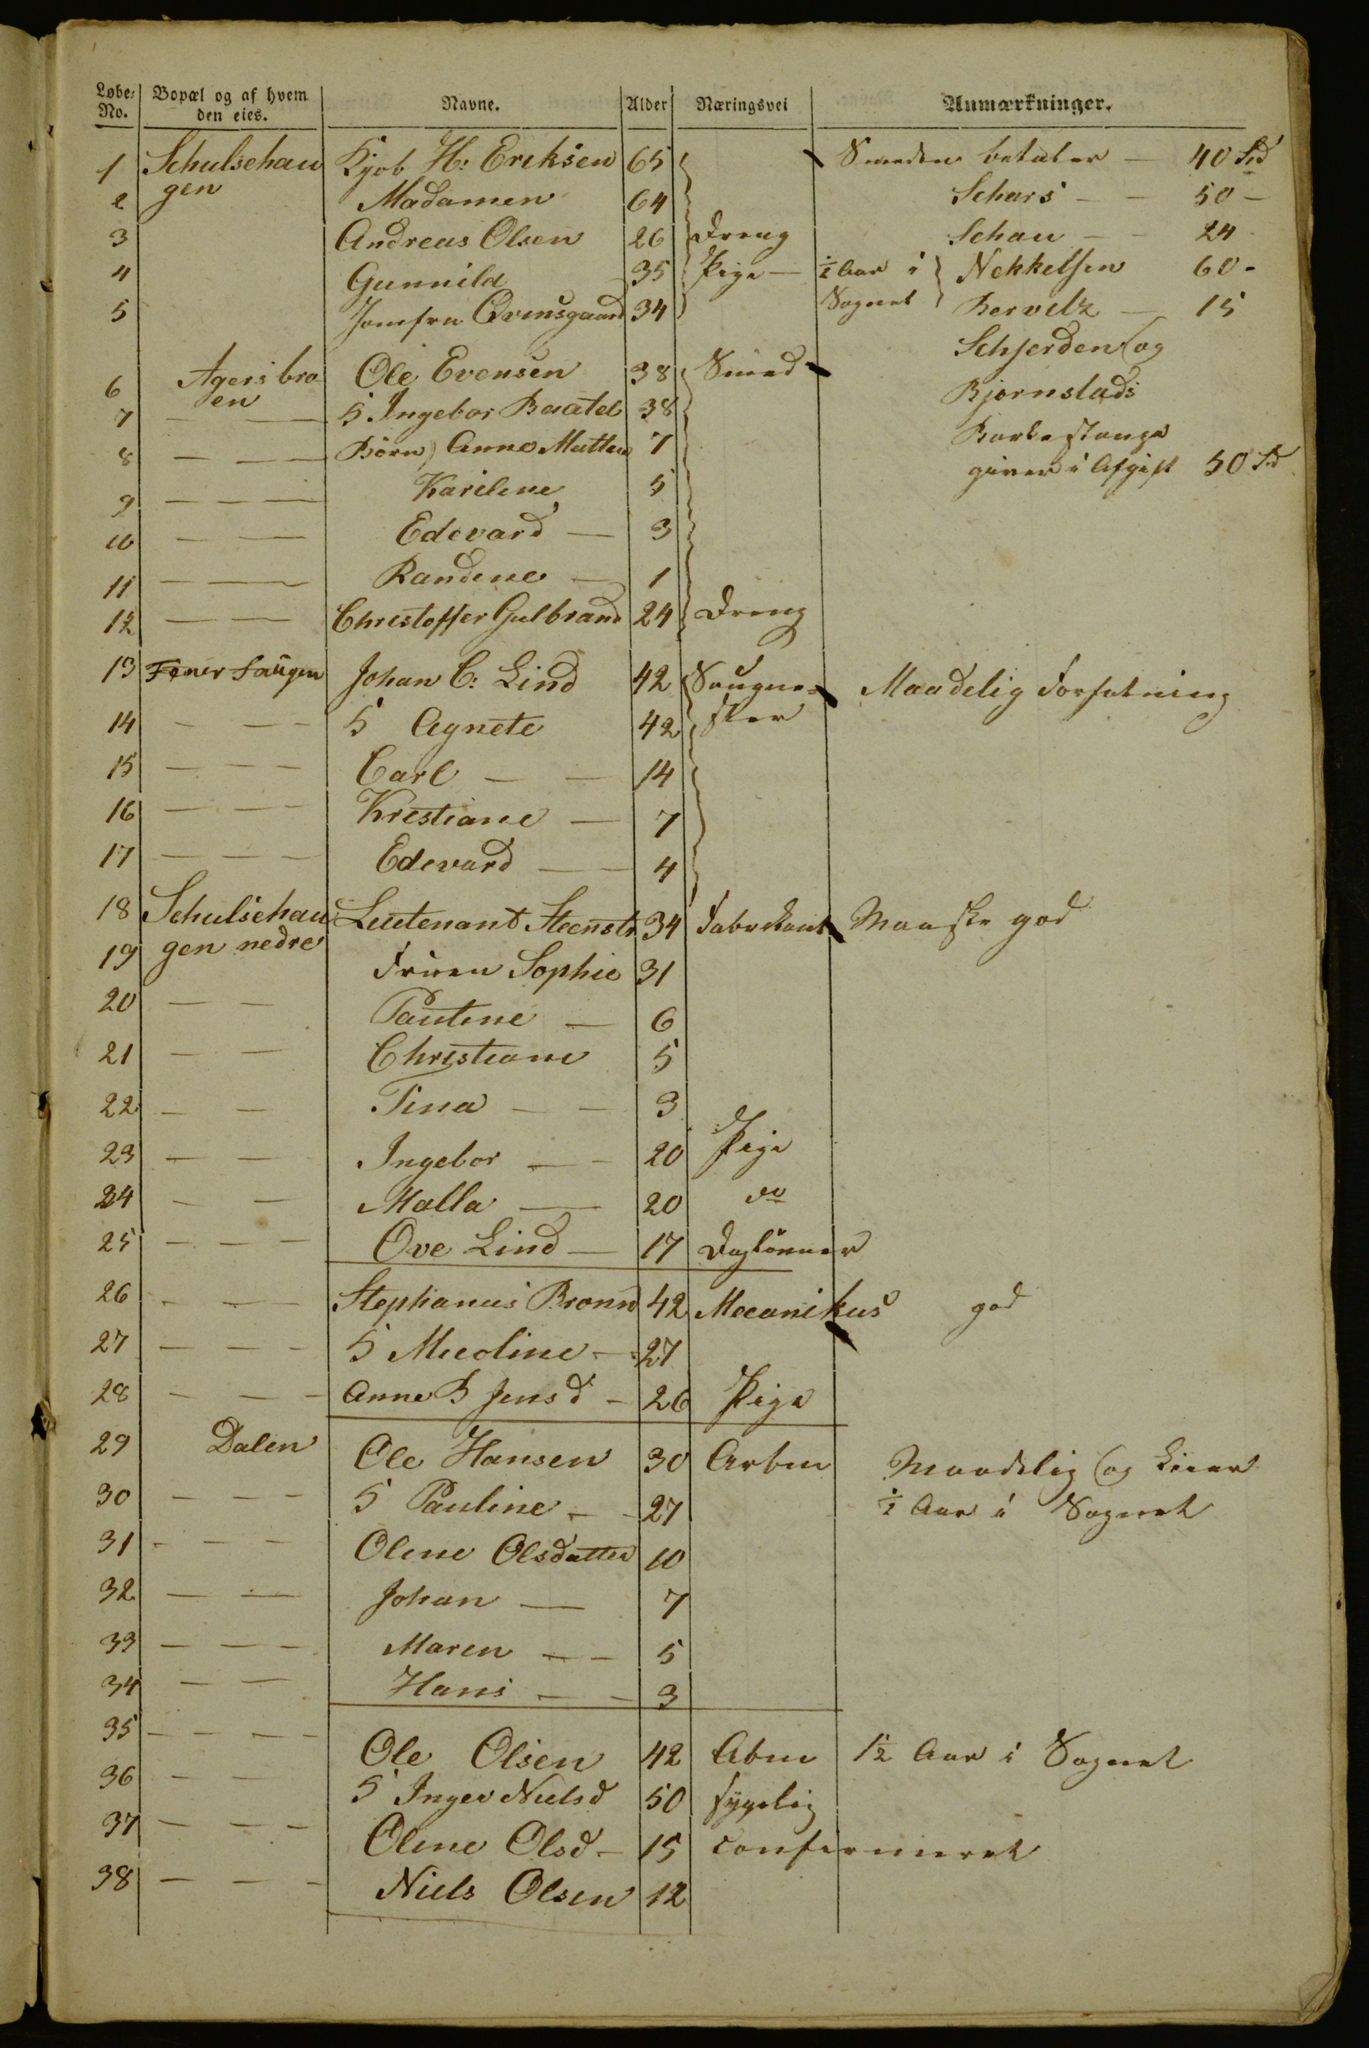 Løbe- No. Bopæl og af hvem den eies. Navne. Alder Næringsvei Anmærkninger.
1 Schulsehau Kjøb H: Eriksen 65 Smeden betaler — 40 Sd
2 gen Madamen 64 Schars — — 50 —
3 Andreas Olsen 26 Dreng Schau — — 24
4 Gunnild 35 Pige — ½ Aar i Nekkelsen 60 -
5 Jomfru Qvensgaard 34 Sognet Bervelz — 15
Schjerden og
6 Agersbro Ole Evensen 38 Smed Bjørnstads
7 en — — 5 Ingebor Baatel 38 Barkestange
8 — — — Børn, Anne Mattea 7 giver i Afgift 50 Sd
9 — — — Karilene 5
10 — — — Edevard — 3
11 — — — Randene — 1
12 — — — Christoffer Gulbrand 24 Dreng
13 Johan C: Lind 42 Saugme- Maadelig Forfatning
14 — — — 5 Agnete 42 ster
15 — — — Carl — — 14
16 — — — Krestiane — 7
17 — — — Edevard — — 4
18 Schulsehau Leutenant Steenstr 34 Fabrikant Maaske god
19 gen nedre Fruen Sophie 31
20 — — Pauline — 6
21 — — Christiane 5
22 — — Tina — — 3
23 — — Ingebor — — 20 Pige
24 — — Malla — 20 do
25 — — — Ove Lind — 17 Daglønner
26 — — — Stephanus Bronn 42 Mecanikus god
27 — — — 5 Micoline — 27
28 — — — Anne B Jensd — 26 Pige
29 Dalen Ole Hansen 30 Arbm Maadelig og Leier
30 — — — 5 Pauline — — 27 ½ Aar i Sognet
31 — — — Olene Olsdatter 10
32 — — Johan — 7
33 — — — Maren — — 5
34 — — Hans — — 3
35 — — — — Ole Olsen 42 Abm 1½ Aar i Sognet
36 — — 5 Inger Nielsd 50 sygelig
37 — — — Olene Olsd — 15 confirmeret
38 — — — Niels Olsen 12